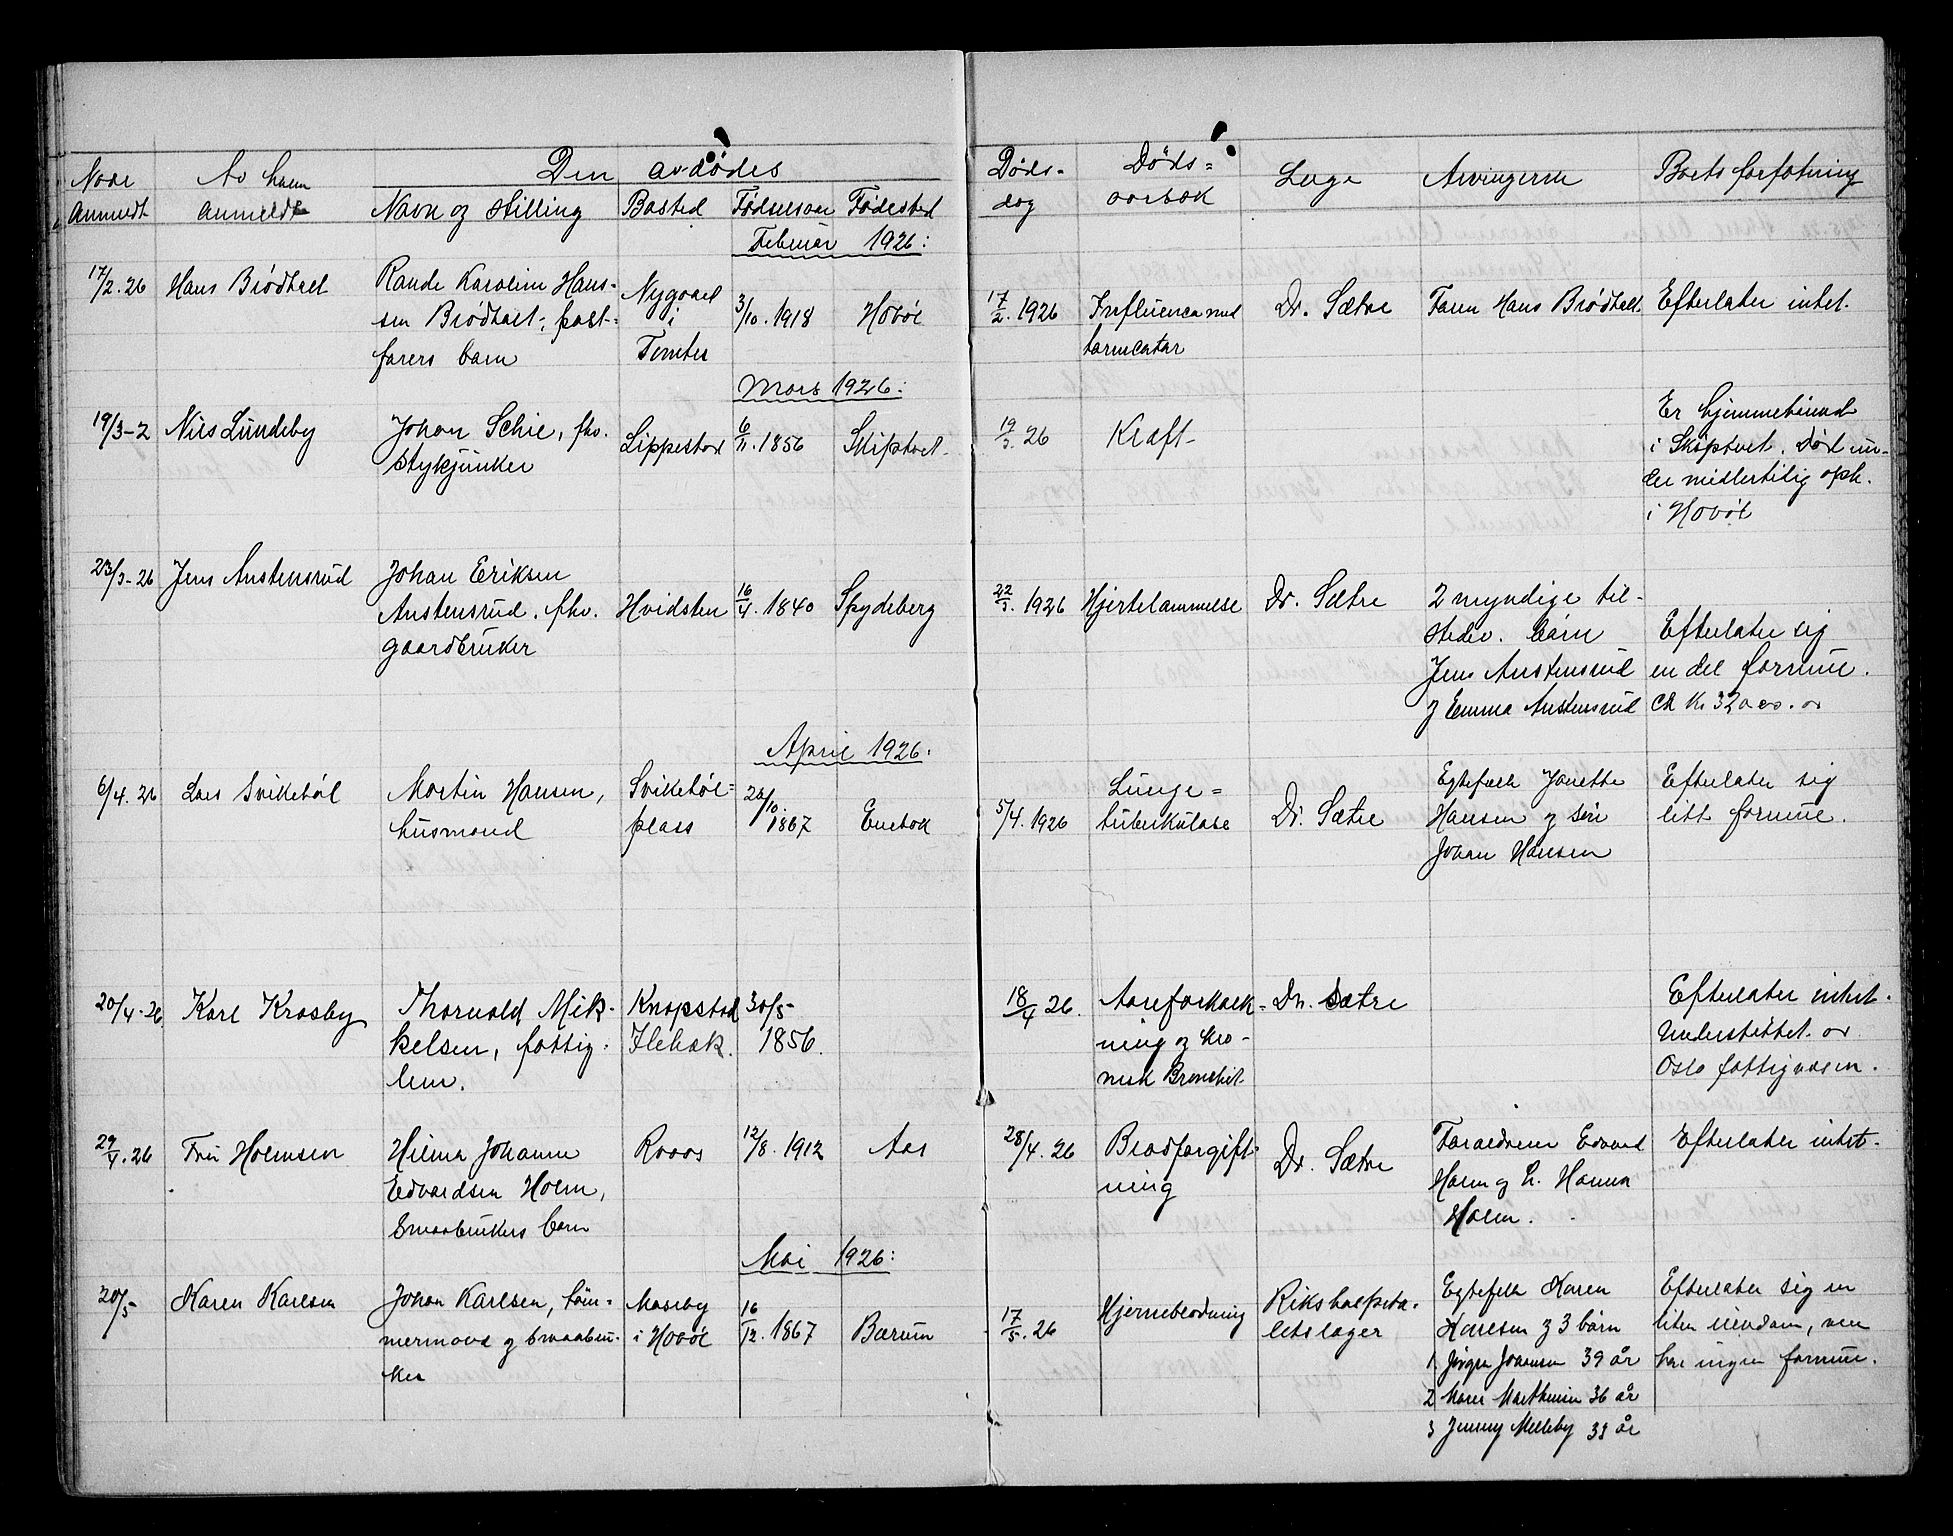 Naar Anmeldt
Av hvem anmeldt
Den avdødes
Navn og stilling
Bosted
Fødselsaar
Fødested
Døds-
dag
Døds=
aarsak
Læge
Arvingerne
Februar 1926:
17/2.26
Hans Brødholt
Karoline Hans-
sen Brødholt, post-
førers barn
Nygaard
i
Tomter
3/10.1918
Hobøl
17/2.1926
Influenca med
tarmcatar
Dr. Sætre
Faren Hans Brødholt.
Efterlater intet.
Mars 1926:
19/3-2
Nils Lundeby
Johan Schie, fhv.
Stykjunker
Lippestad
6/11.1856
Skiptvet.
19/3.26
Kræft
Er hjemmehørend
i Skiptvet. Død un-
der midlertidig oph.
i Hobøl
23/3-26
Jens Austensrud
Johan Eriksen
Austensrud. fhv.
gaardbruker
Hvidsten
16/4.1840
Spydeberg
22/3.1926
Hjertelammelse
Dr. Sætre
2 myndige til-
stedev. barn
Jens Austensrud
og Emma Austensrud
Efterlater sig
en del formue.
April 1926:
6/4.26
Lars Sviketøl
Martin Hansen,
husmand
Sviketøl=
plass
1867
Enebak
5/4.1926
Lunge=
tuberkulose
Dr. Sætre
Egtefelle Janette
Hansen og søn
Johan Hansen
Efterlater sig
litt formue.
20/4-26
Karl Krosby
Thorvald Mik-
kelsen, fattig-
lem.
Knapstad
30/5-
1856.
18/4 26.
Aareforkalk-
ning og kro-
nisk Bronchit.
Dr. Sætre
Efterlater intet.
Understøttet av
Oslo fattigvæsen.
29/4.26
Fru Holmsen
Hilma Johanne
Edvardsen Holm,
Smaabrukers barn
Raaos
12/8.1912
Aas
28/4.26
Blodforgift-
ning
Dr. Sætre
Foraeldrene Edvard
Holm og h. Hanna
Holm.
Efterlater intet.
Mai 1926:
20/5-
Karen Karlsen
Johan Karlsen, tøm-
mermand og smaabru-
ker
Moseby
i Hobøl
16/12.1867
Bærum
17/5.26
Hjerneblødning
Rikshospita-
letslæger
Egtefelle Karen
Karlsen og 3 barn
1. Jørgen Johansen 39 år
2 Karen Marthinsen 36 år
3 Jenny Melleby 33 år
Efterlater sig en
liten eiendom, men
har ingen formue.